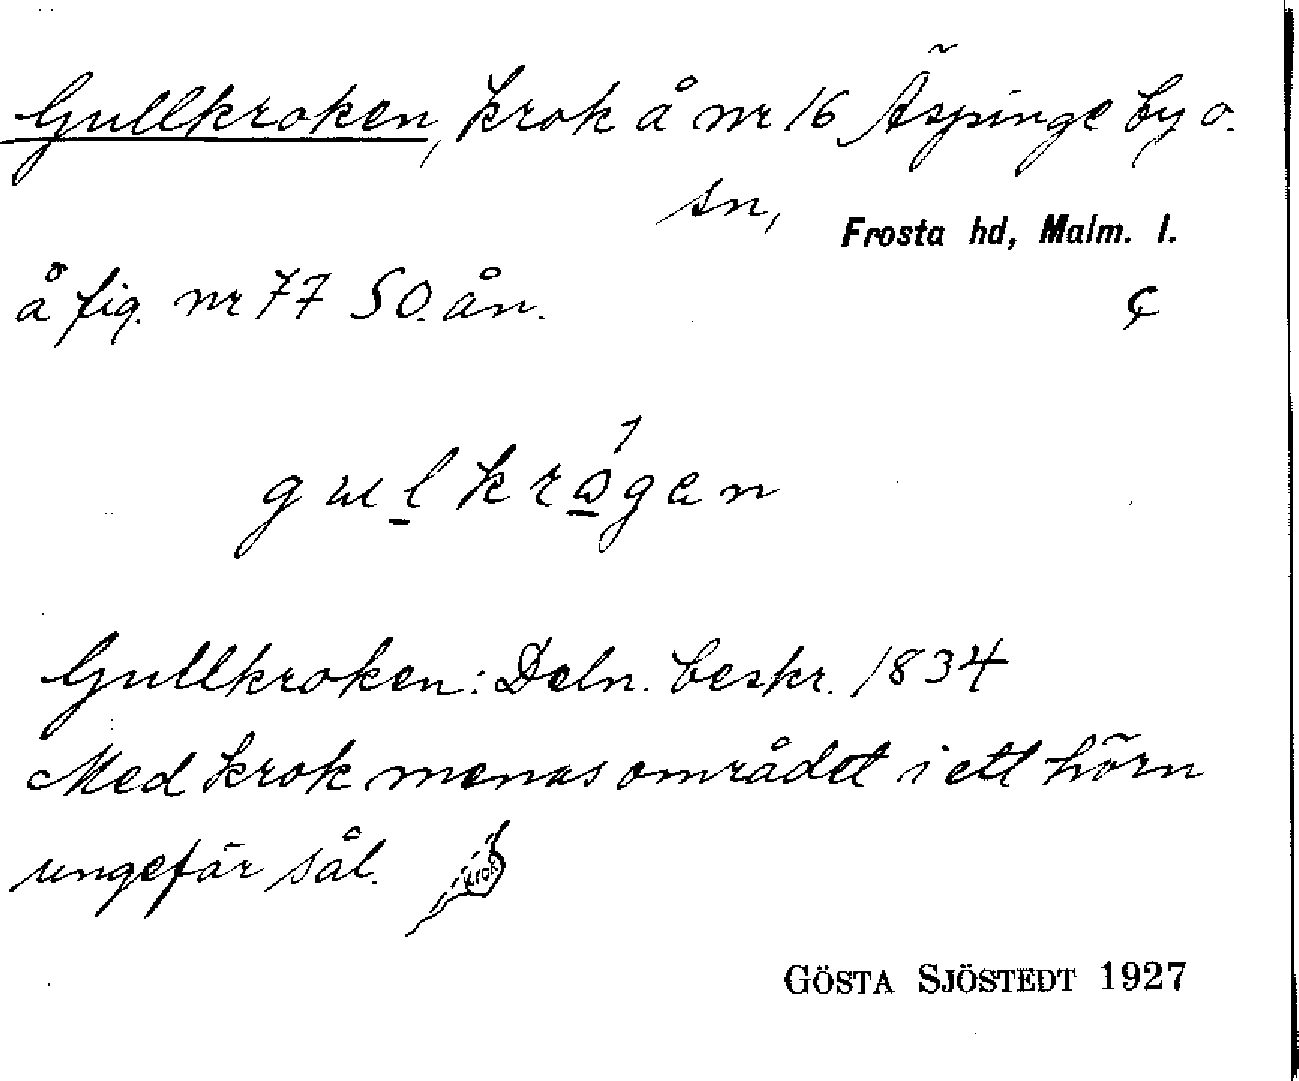 Gullkroken, krok å nr 16 Äspinge by o.
sn,
Frosta hd, Malm. l.
å fig. nr 77 SO. ån.
gulkrågen
Gullkroken: Deln. beskr. 1834
Med krok menas området i ett hörn
ungefär sål. krok
GÖSTA SJÖSTEDT 1927